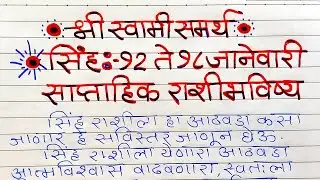 श्री स्वामी समर्थ
सिंह:-१२ ते १८ जानेवारी
साप्ताहिक राशीभविष्य
सिंह राशीला हा आठवडा कसा
जाणार हे सविस्तर जाणून घेऊ.
सिंह राशीला येणारा आठवडा
आत्मविश्वास वाढवणारा, स्वतःला